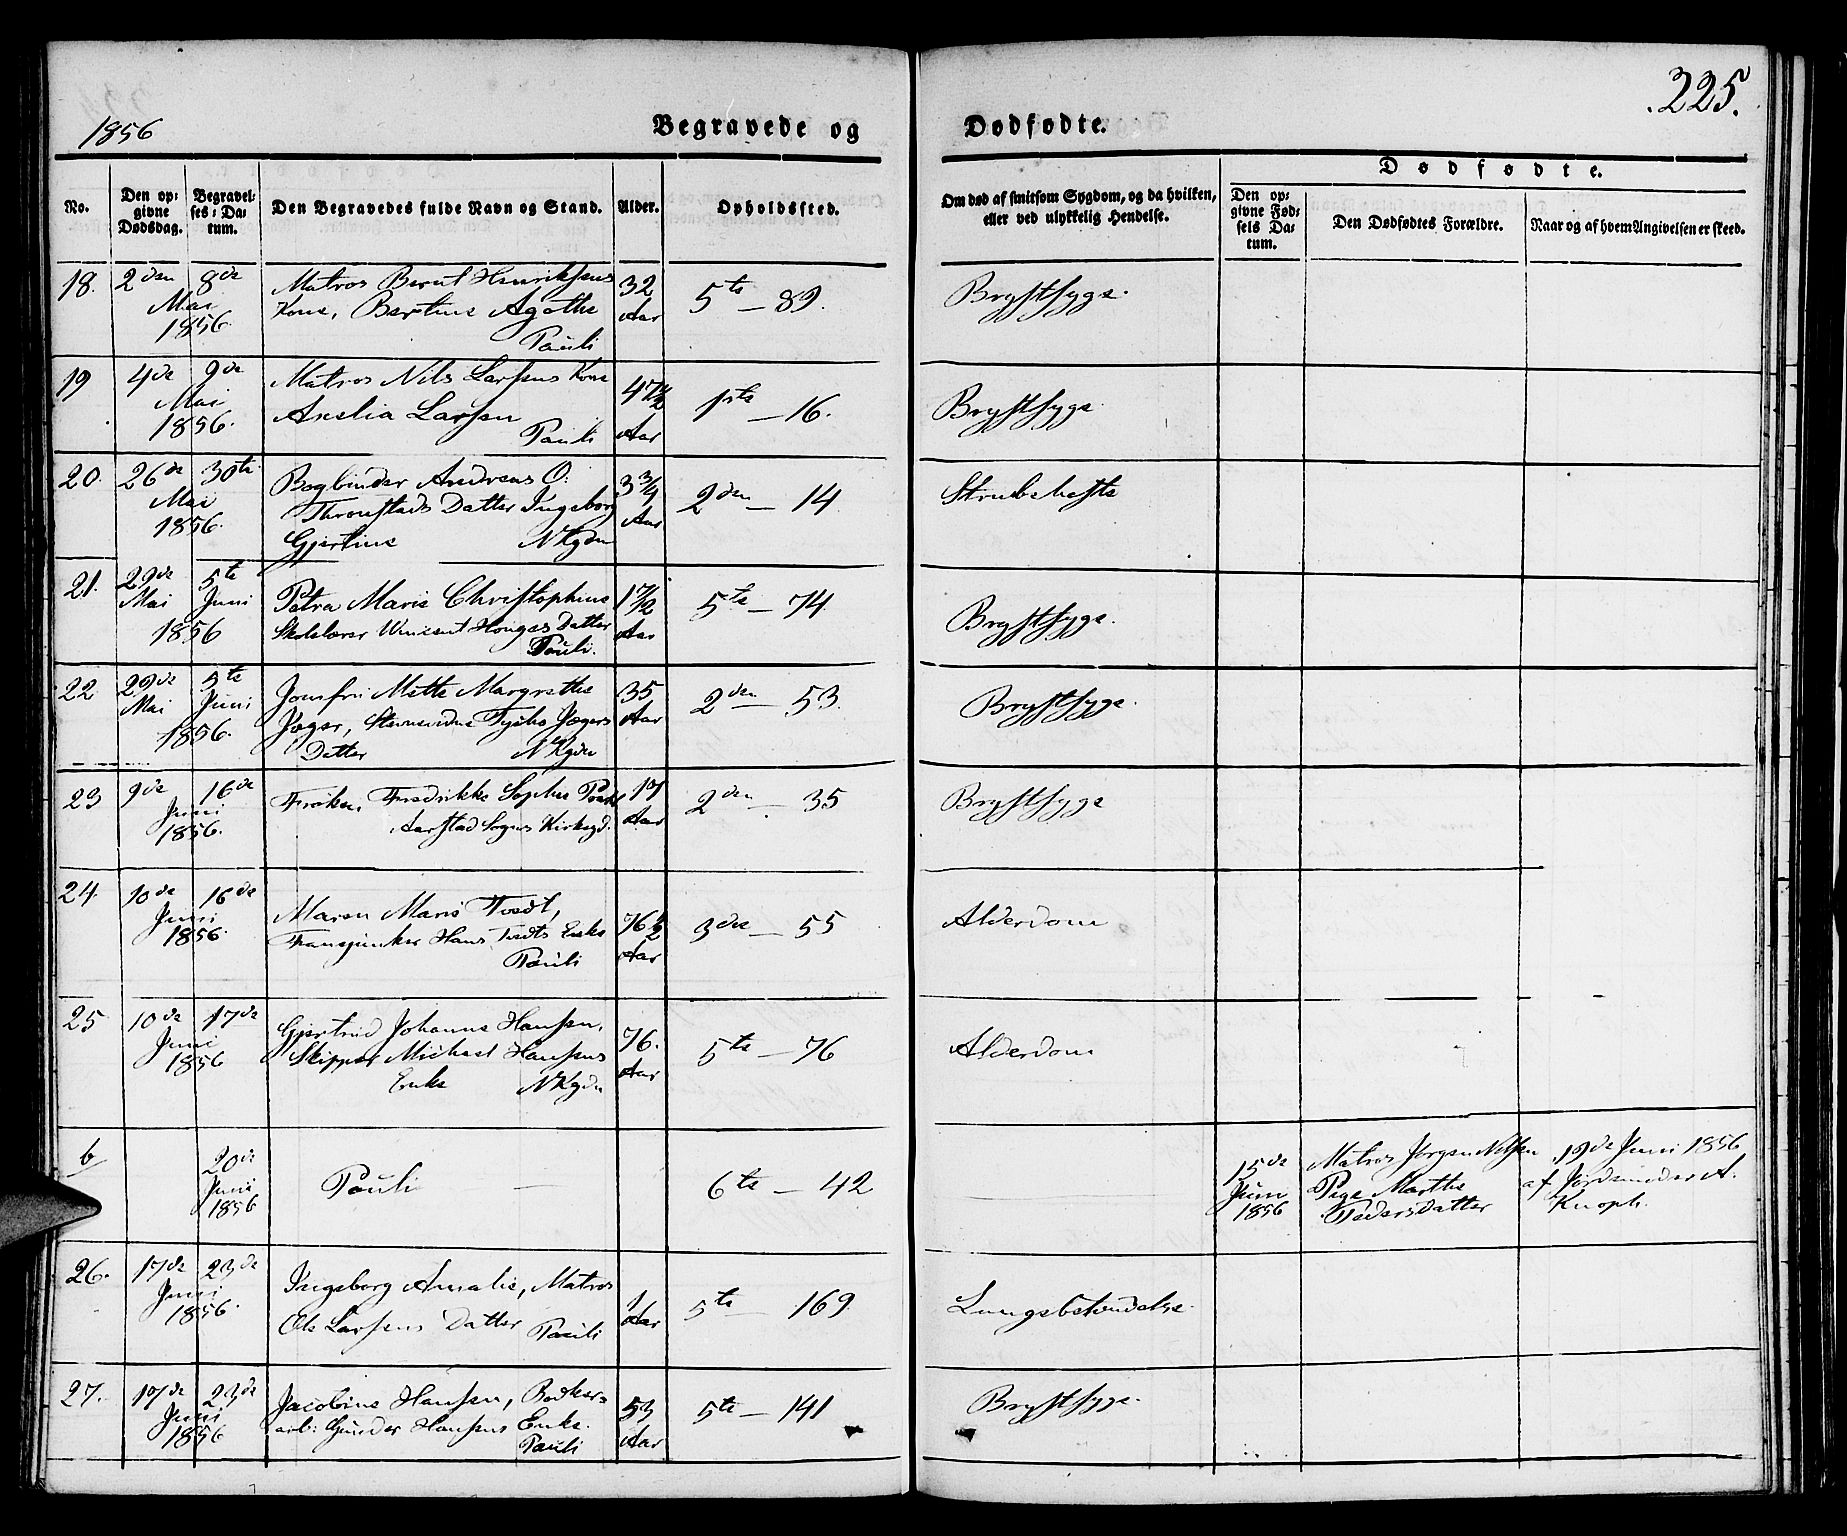 1856
Begravede og Dødfødte.
225.
No.
Den opgivne Dødsdag.
Begravelses-Datum.
Den Begravedes fulde Navn og Stand.
Alder.
Opholdssted.
Om død af smitsom Sygdom, og da hvilken, eller ved ulykkelig Hendelse.
Dødfødte.
Den opgivne Fødsels Datum.
Den Dødfødtes Forældre.
Naar og af hvem Angivelsen er skeed.
18. 2den 8de Mai 1856.
Matros Bernt Henriksens
Kone, Bertine Agathe
Pauli
32 Aar
5te — 89.
Brystsyge.
19 4de 9de Mai 1856.
Matros Nils Larsens Kone
Anelia Larsen
Pauli
47½ Aar
1ste — 16.
Brystsyge
20. 26de 30te Mai 1856.
Bogbinder Andreas O.
Thronstads Datter Ingeborg
Gjertine NKgdn
3¾ Aar
2den — 14
Strubehoste
21. 29de Mai 5te Juni 1856
Petra Marie Christophine
Skolelærer Vincent Datter
Pauli.
17½ Aar
5te — 74
Brystsyge.
22 29de Mai 5te Juni 1856.
Jomfru Mette Margrethe
Jæger, Tycho Jægers
Datter NKgdn
35 Aar
2den — 53.
Brystsyge.
23 9de 16de Juni 1856.
Frøken, Fredrikke Sophie
Aarstad Sogns Kirkegd.
17 Aar
2den — 35
Brystsyge
24. 10de 16de Juni 1856.
Maren Marie Tvedt,
Hans Tvedts Enke
Pauli
76½ Aar
3die — 55
Alderdom
25 10de 17de Juni 1856
Gjertrud Johanne Hansen,
Skipper Michael Hansens
Enke NKgdn
76. Aar
5te — 76
Alderdom
6 20de Juni 1856
Pauli —
6te — 42
15de Juni 1856
Matros Jørgen Nilsen
Pige Marthe
Pedersdatter
19de Juni 1856
af Jordemoder A.
Knoph.
26. 17de 23de Juni 1856.
Ingeborg Amalie, Matros
Ole Larsens Datter Pauli
1 Aar
5te — 169
Lungebetændelse.
27. 17de 23de Juni 1856
Jacobine Hansen, Bødker-
arb: Gunder Hansens Enke.
Pauli
53 Aar
5te — 141
Brystsyge.